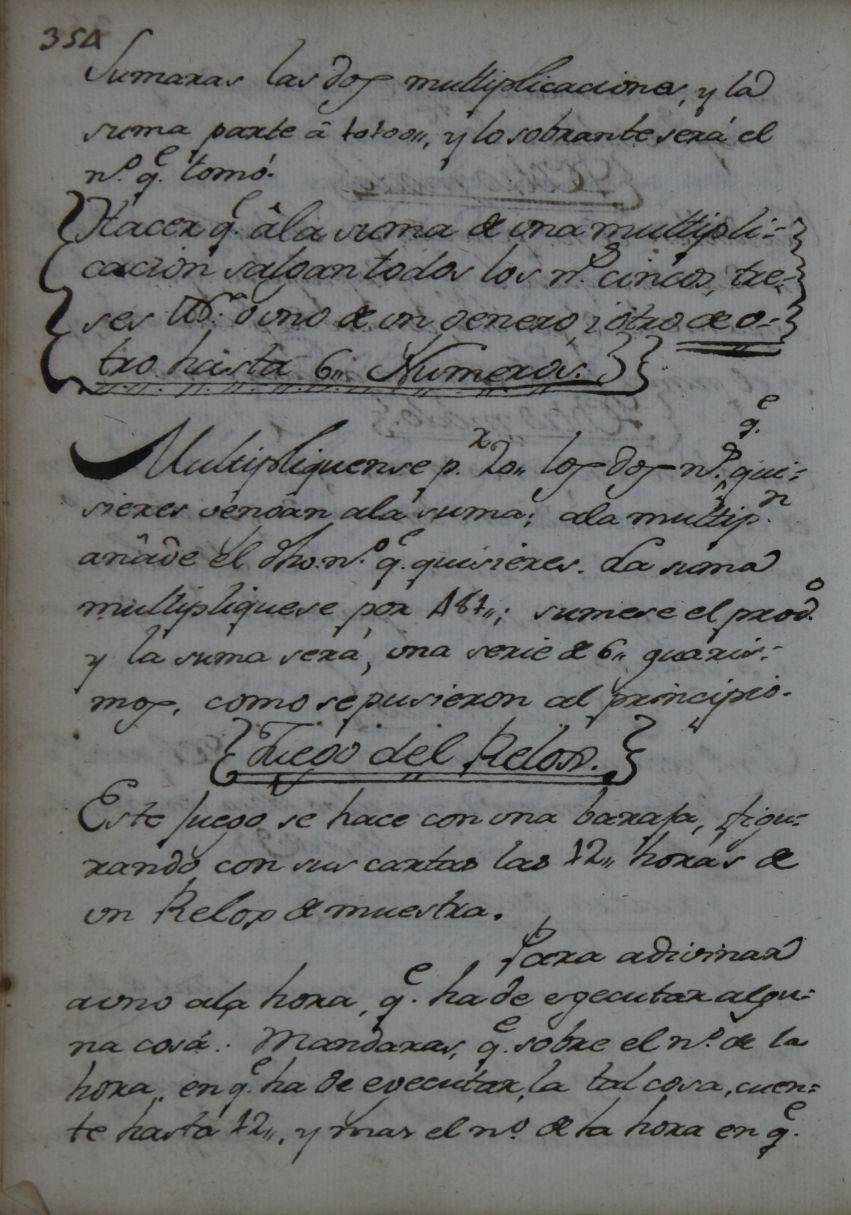 354
Sumaras las dos multiplicaciones, y la
suma parte â 10100,, y lo sobrante será el
n.º q.e tomó.
Hacer q.e âla suma de una multipli-
cacion salgan todos los n.s cincos, tre-
ses &.a ô uno de un genero, i otro de o-
tro hasta 6,, Numeros.
Multipliquense p.r 20,, los dos n.s q.e qui-
sieres vendan ala suma; ala multip.n
añade el dho. n.º q.e quisieres. La suma
multipliquese por 481,,; sumese el prod.o
y la suma será, una serie de 6,, guaris-
mos, como se pusieron al principio.
Juego del Relox.
Este juego se hace con una baraja, figu-
rando con sus cartas las 12,, horas de
un Relox de muestra.
Para adivinar
auno ala hora, q.e ha de egecutar algu-
na cosa. Mandaras, q.e sobre el n.º de la
hora, en q.e ha de egecutar, la tal cosa, cuen-
te hasta 12,, y mas el n.º de la hora en q.e